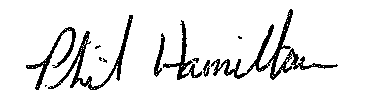 Phil Hamilton